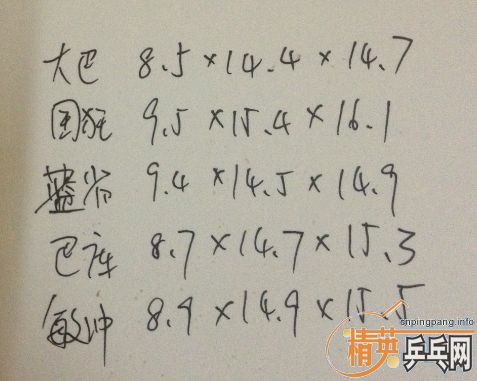 大巴 8.5×14.4×14.7
国狂 9.5×15.4×16.1
蓝省 9.4×14.5×14.9
巴库 8.7×14.7×15.3
敏冲 8.9×14.9×15.5
cnpingpang.info
精英乒乓网